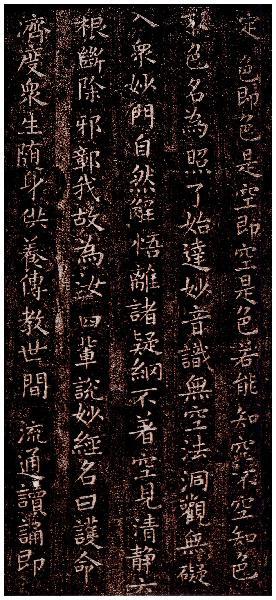 定色即色是空即空是色若能知空不空知色
色名為照了始達妙音識無空法洞觀無礙
入衆妙門自然解悟離諸疑網不著空見清静六
根斷除邪鄣我故為汝四輩說妙經名曰護命
濟度衆生随身供養傳教世間流通讀誦即